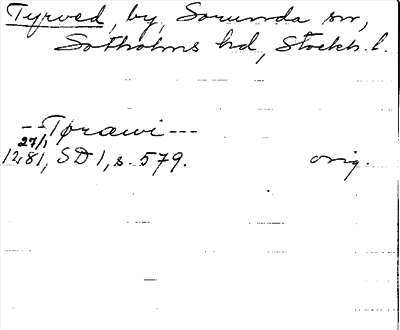 Tyrved, by, Sorunda sn,
Sotholms hd, Stockh. l.
-- Tørawi ---
27/1
1281, SD 1, s. 579. orig.